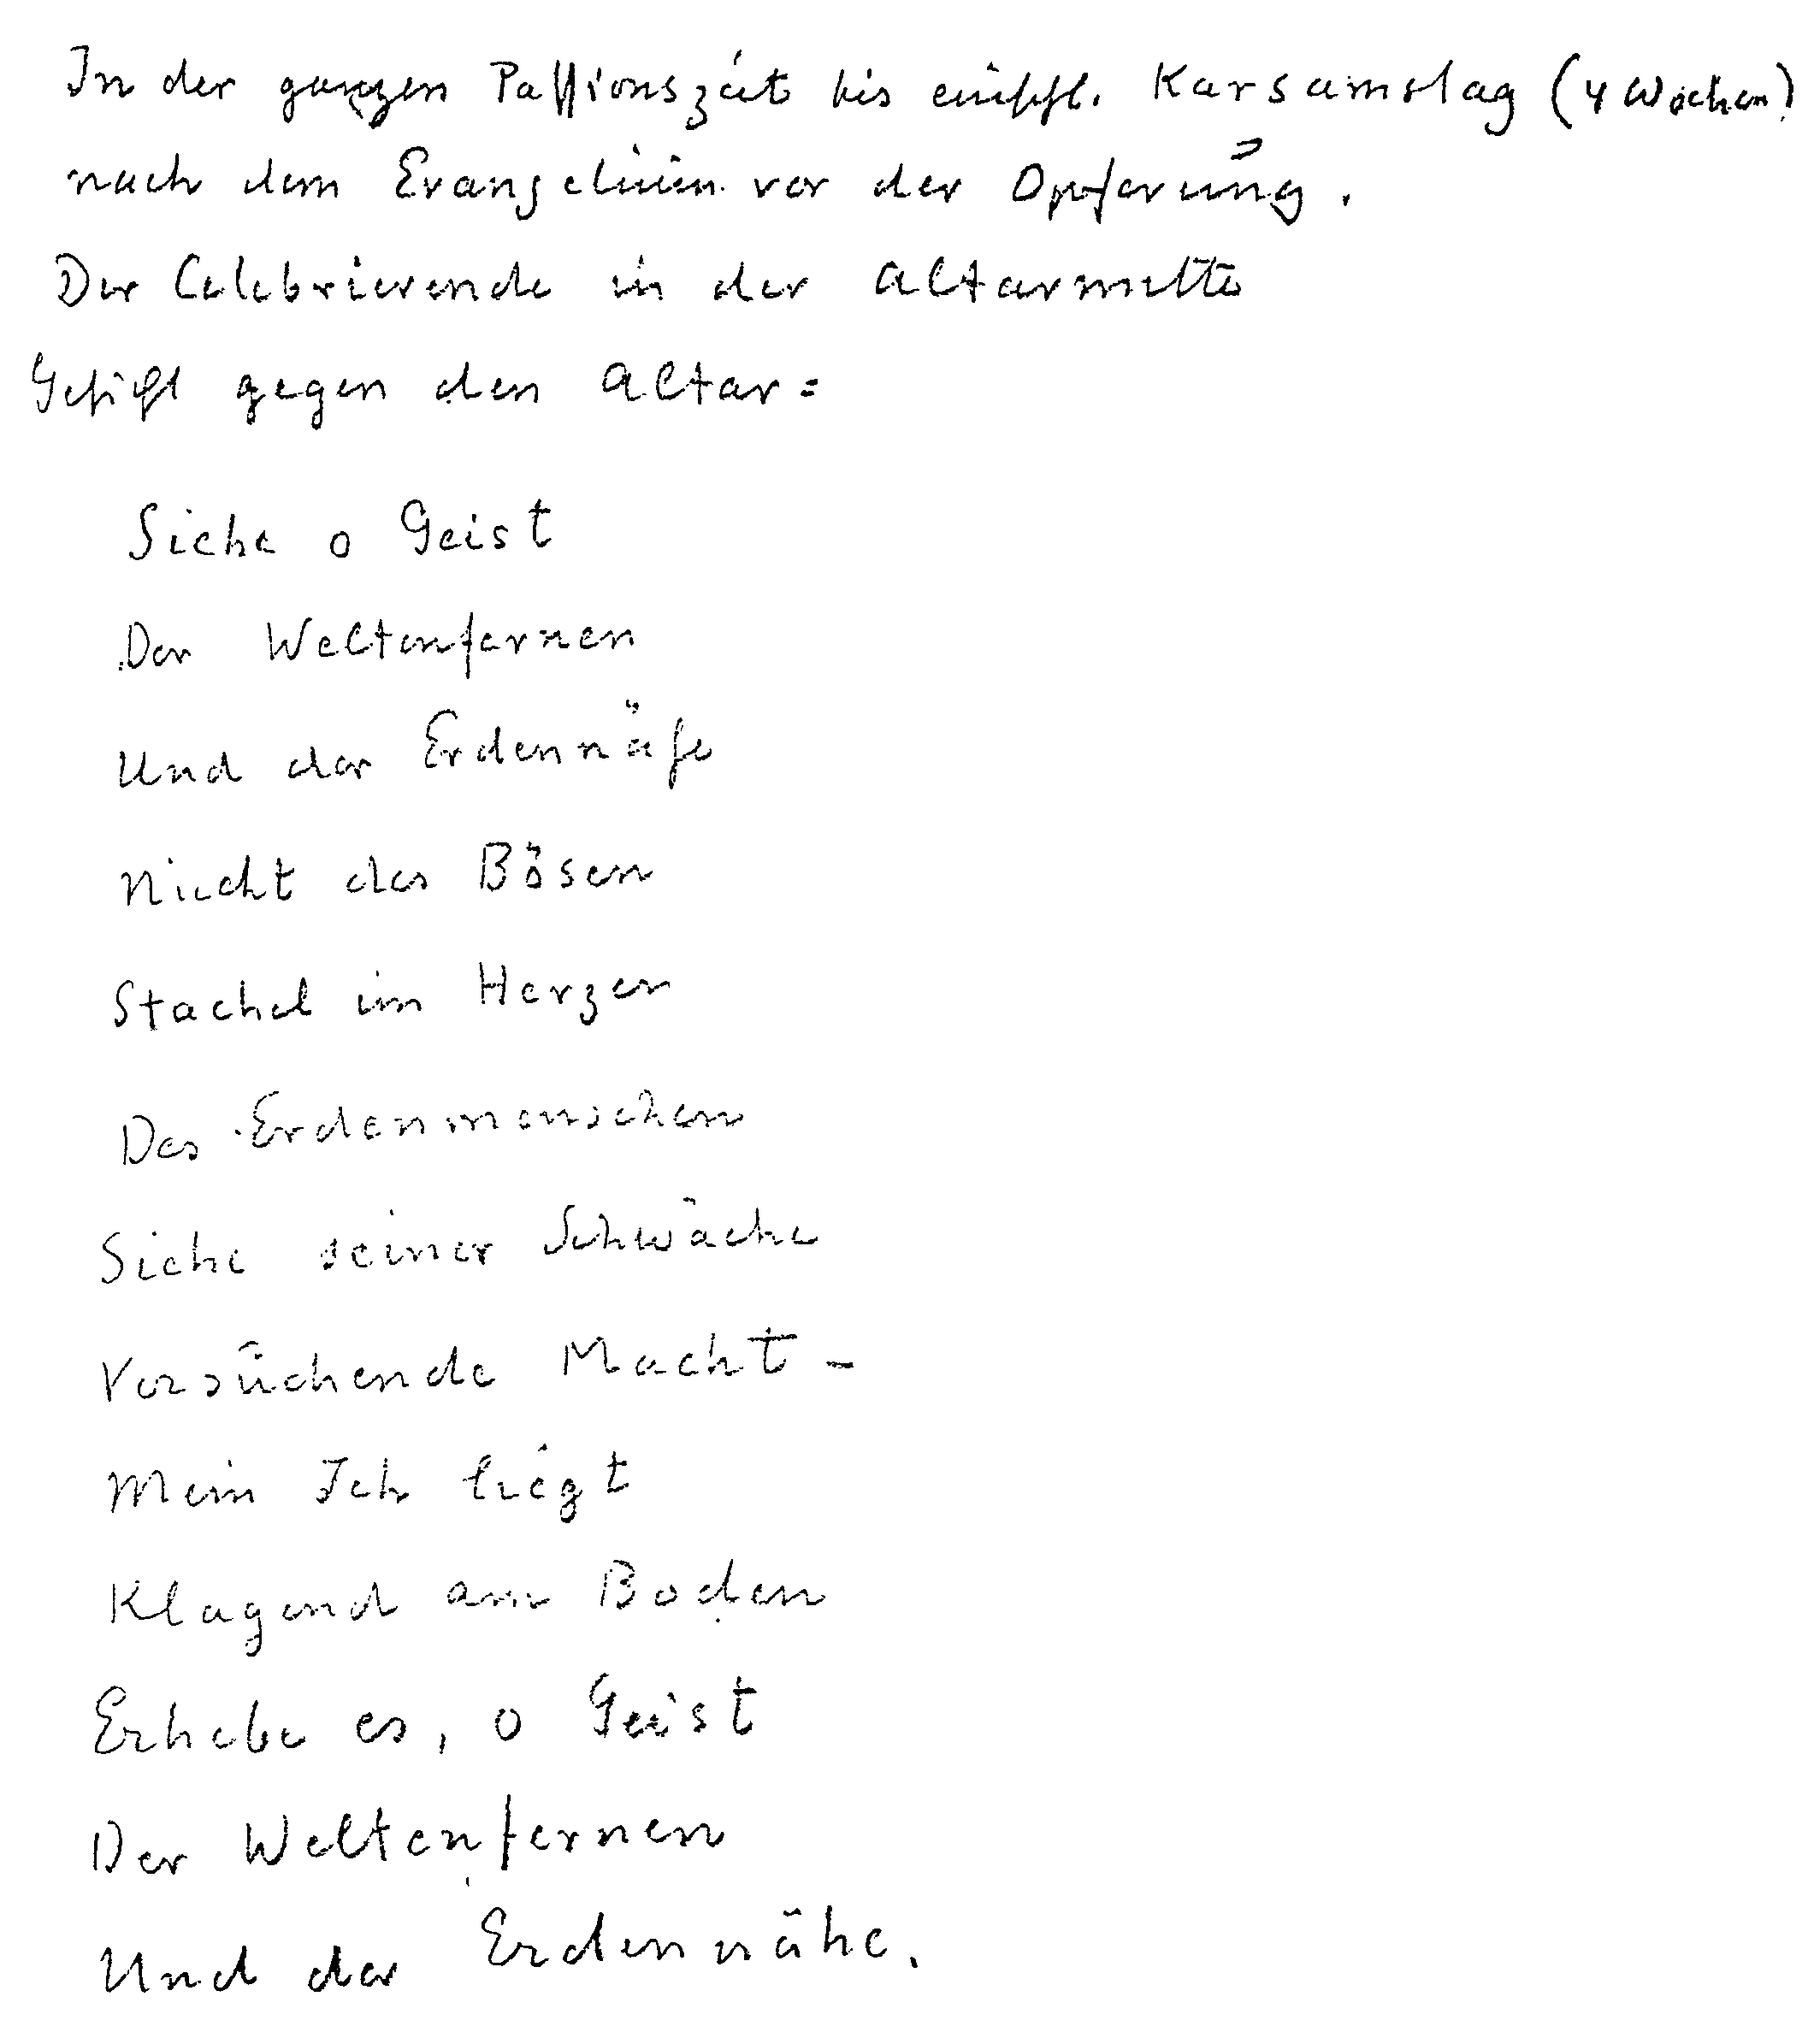 In der ganzen Passionszeit bis einschl. Karsamstag (4 Wochen)
nach dem Evangelium vor der Opferung.
Der Celebrierende in der Altarmitte
Gesicht gegen den Altar =
Siehe o Geist
Der Weltenfernen
Und der Erdennähe
Nicht des Bösen
Stachel im Herzen
Des Erdenmenschen
Siehe seiner Schwäche
Versuchende Macht -
Mein Ich liegt
Klagend am Boden
Erhebe es, o Geist
Der Weltenfernen
Und der Erdennähe.